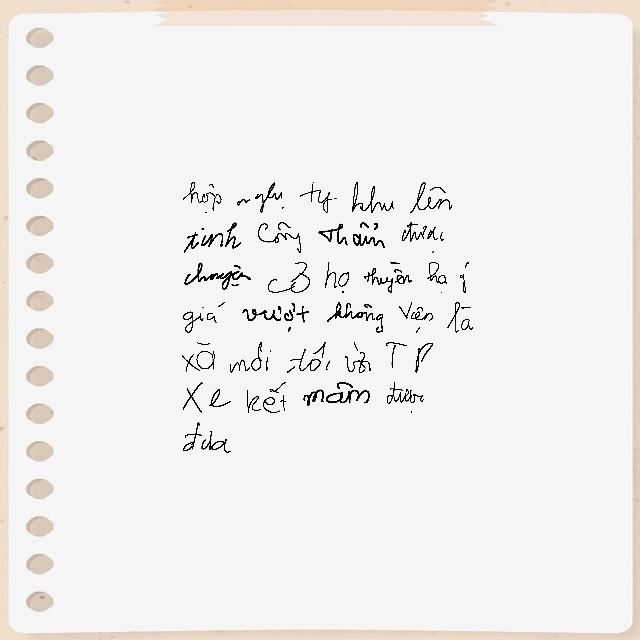 hợp nghị ty khu lên
tinh Công Thẩm được
chuyện Cổ họ thuyền hạ ý
giá vượt không Vận là
xã mới tối với TP
Xe kết mâm được
đưa